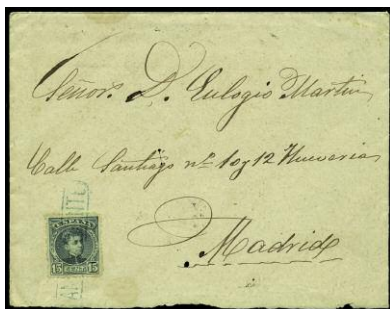 Señor. D. Eulogio Martin
Calle Santiago nº 10 y 12 Hueveria
Madrid
15 15